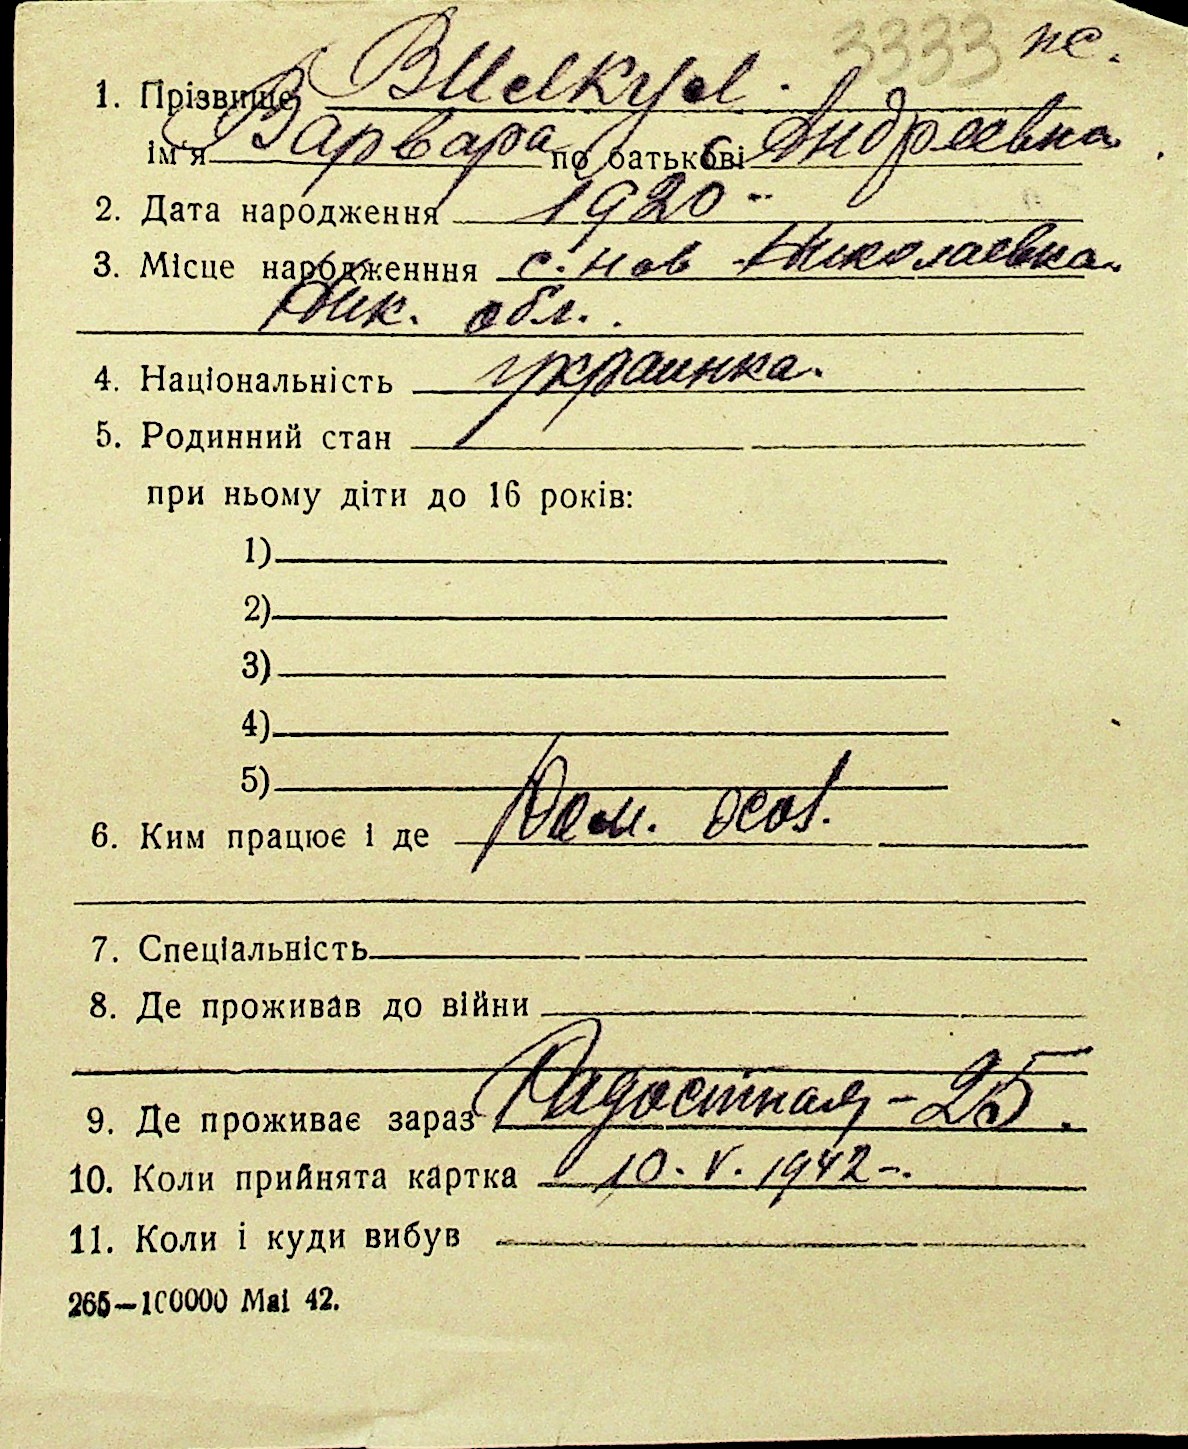 3333 пс.
1. Прізвище Вилкул.
ім'я Варвара по батькові Андреевна.
2. Дата народження 1920 -
3. Місце народженння с. Нов Николаевка
Ник. обл.
4. Національність украинка.
5. Родинний стан
при ньому діти до 16 років:
1)
2)
3)
4)
5)
6. Ким працює і де Дом. особ.
7. Спеціальність
8. Де проживав до війни
9. Де проживає зараз Радостная - 25.
10. Коли прийнята картка 10. V. 1942 -.
11. Коли і куди вибув
265—100000 Маі 42.